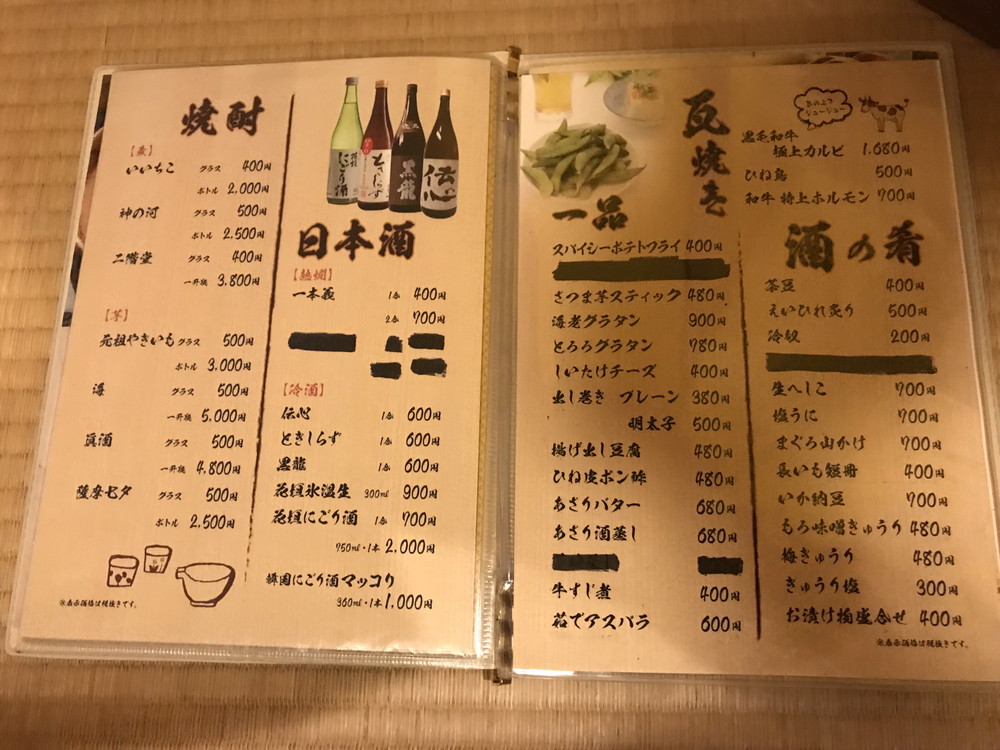 焼酎
【麦】
いいちこ グラス 400円
ボトル 2,000円
神の河 グラス 500円
ボトル 2,500円
二階堂 グラス 400円
一升瓶 3,800円
【芋】
元祖やきいも グラス 500円
ボトル 3,000円
海 グラス 500円
一升瓶 5,000円
眞酒 グラス 500円
一升瓶 4,800円
薩摩七夕 グラス 500円
ボトル 2,500円
※表示価格は税抜きです。
にごり酒
ときしらず
黒龍
伝心
日本酒
【熱燗】
一本義 1合 400円
2合 700円
【冷酒】
伝心 1合 600円
ときしらず 1合 600円
黒龍 1合 600円
花垣氷温生 300ml 900円
花垣にごり酒 1合 700円
750ml・1本 2,000円
韓国にごり酒マッコリ
360ml・1本 1,000円
瓦焼き
瓦の上でジュージュー
黒毛和牛
極上カルビ 1,680円
ひね鳥 500円
和牛 特上ホルモン 700円
一品
スパイシーポテトフライ 400円
さつま芋スティック 480円
海老グラタン 900円
とろろグラタン 780円
しいたけチーズ 400円
出し巻き プレーン 380円
明太子 500円
揚げ出し豆腐 480円
ひね皮ポン酢 480円
あさりバター 680円
あさり酒蒸し 680円
牛すじ煮 400円
茹でアスパラ 600円
酒の肴
茶豆 400円
えいひれ炙り 500円
冷奴 200円
生へしこ 700円
塩うに 700円
まぐろ山かけ 700円
長いも短冊 400円
いか納豆 700円
もろ味噌きゅうり 480円
梅きゅうり 480円
きゅうり塩 300円
お漬け物盛合せ 400円
※表示価格は税抜きです。